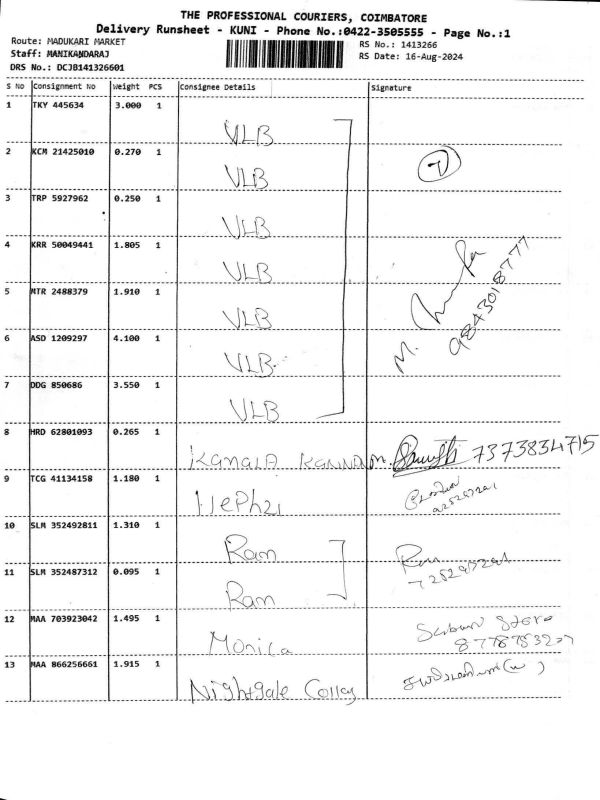 THE PROFESSIONAL COURIERS, COIMBATORE
Delivery Runsheet - KUNI - Phone No.:0422-3505555 - Page No.:1
Route: MADUKARI MARKET
RS No.: 1413266
Staff: MANIKANDARAJ
RS Date: 16-Aug-2024
DRS No.: DCJB141326601
S No Consignment No Weight PCS Consignee Details Signature
1 TKY 445634 3.000 1 VLB
2 KCM 21425010 0.270 1 VLB 7
3 TRP 5927962 0.250 1 VLB
4 KRR 50049441 1.805 1 VLB
5 MTR 2488379 1.910 1 VLB M. 9843018777
6 ASD 1209297 4.100 1 VLB
7 DDG 850686 3.550 1 VLB
8 HRD 62801093 0.265 1 Kamala Kannan m. 7373834715
9 TCG 41134158 1.180 1 Hephzi
10 SLM 352492811 1.310 1 Ram Ram
11 SLM 352487312 0.095 1 Ram
12 MAA 703923042 1.495 1 Monica Store
13 MAA 866256661 1.915 1 Nightgale Colley